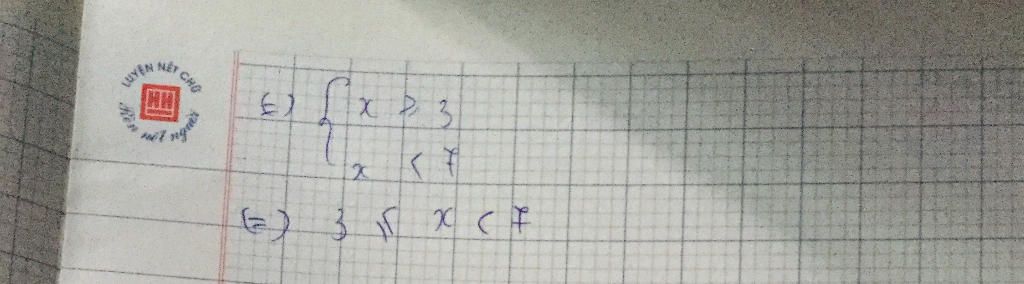 LUYỆN NÉT CHỮ
HH
Rèn nết người
⇔ { x ≥ 3
x < 7
⇔ 3 ≤ x < 7